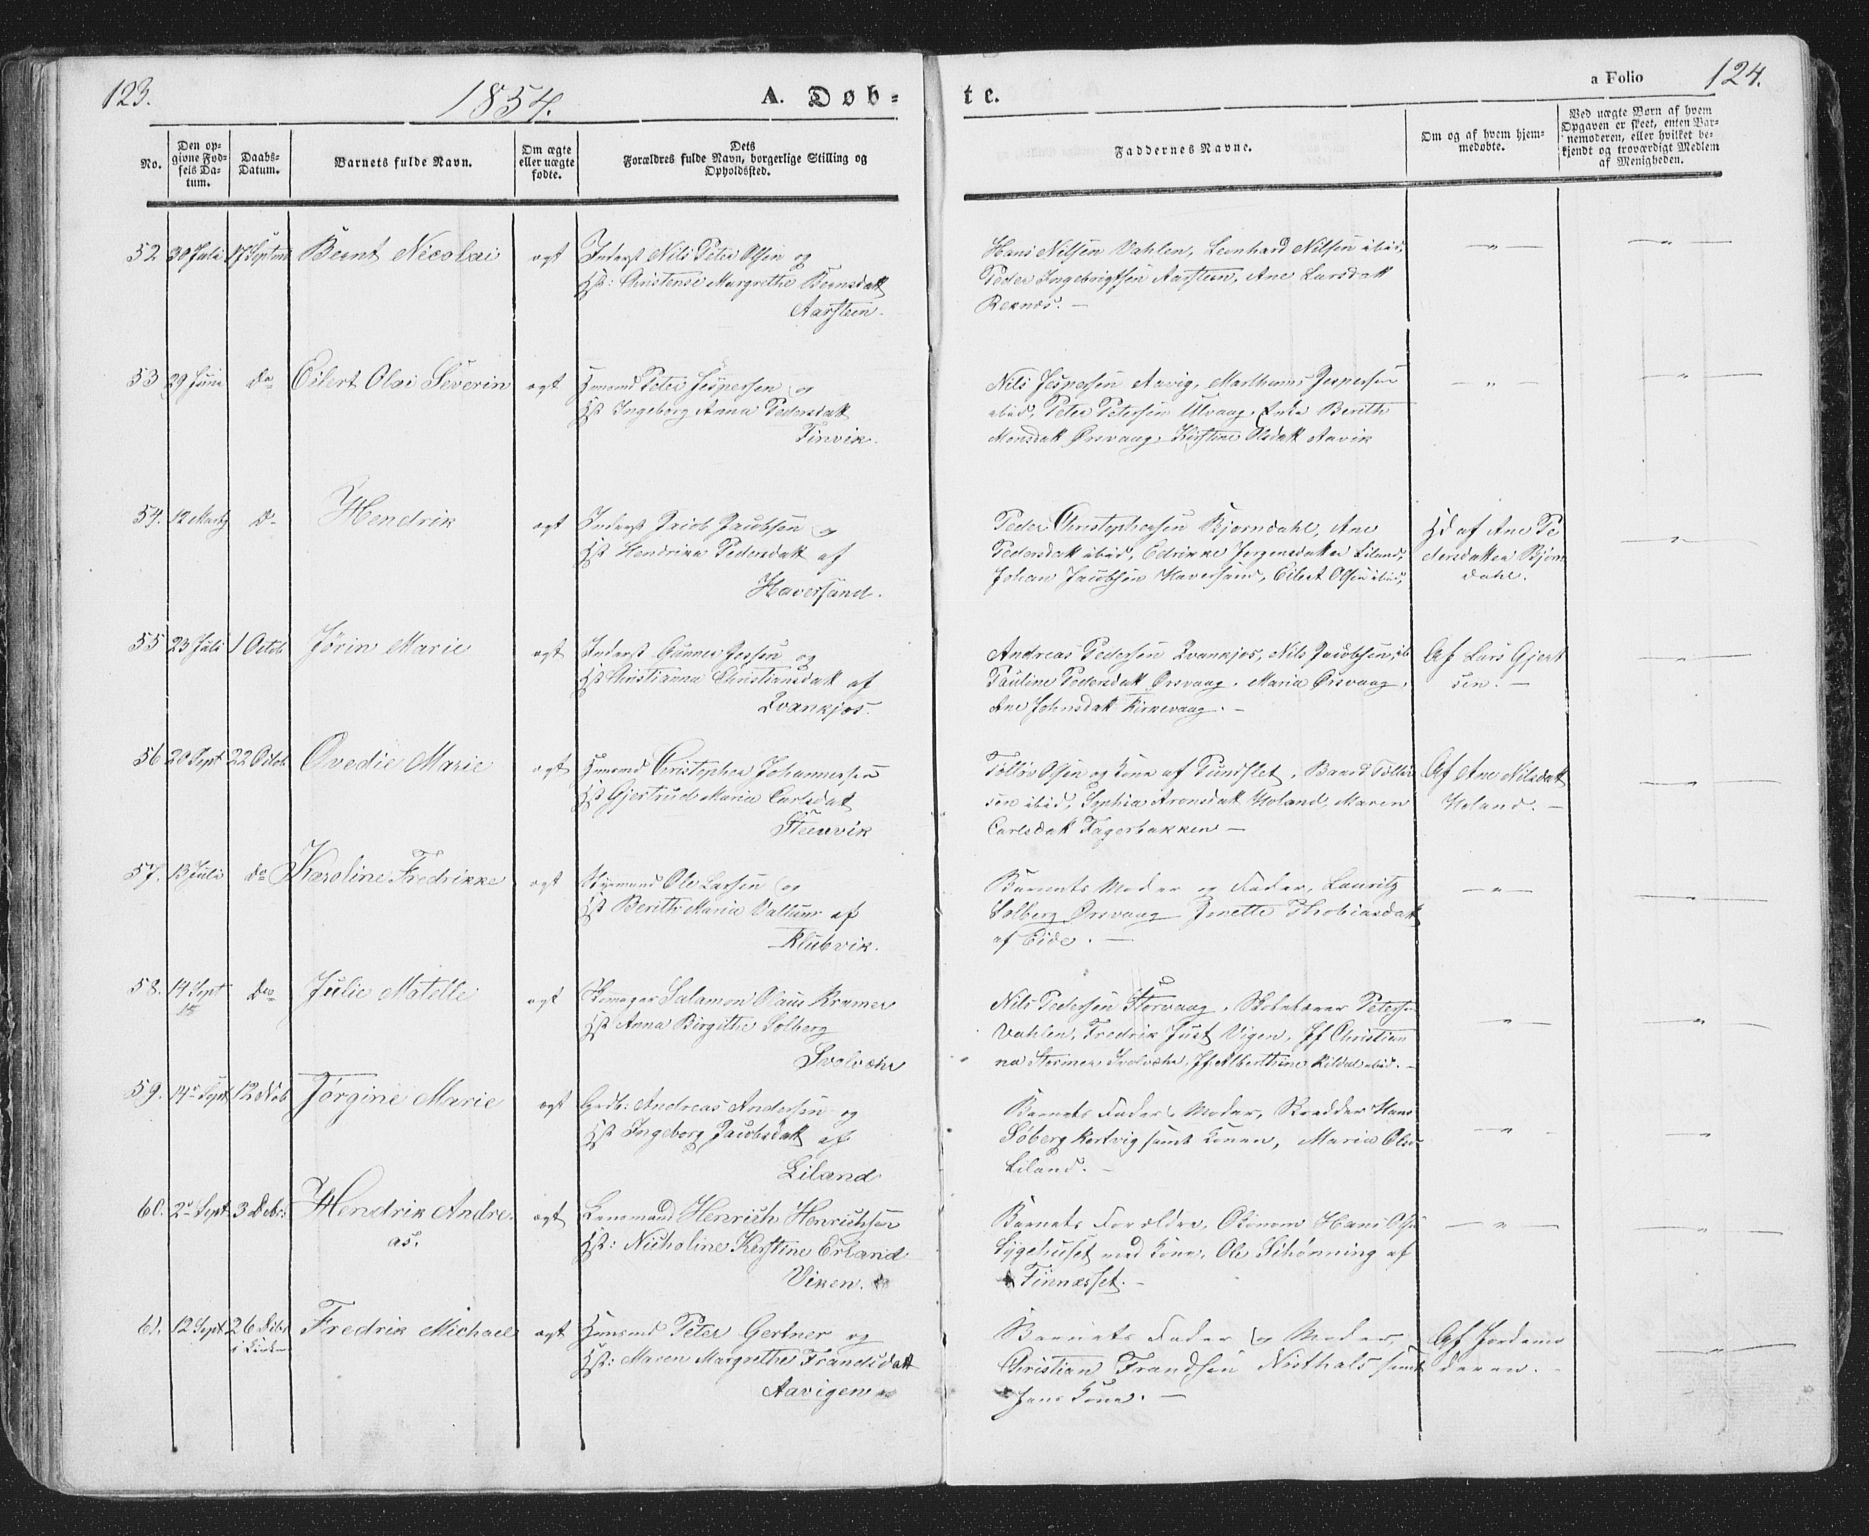 123.
1854.
A. Døb-
te.
a Folio
124.
No.
Den op-
givne Fød-
sels Da-
tum.
Daabs-
Datum.
Barnets fulde Navn.
Om ægte
eller uægte
fødte.
Dets
Forældres fulde Navn, borgerlige Stilling og
Opholdssted.
Faddernes Navne.
Om og af hvem hjem-
medøbte.
Ved uægte Børn af hvem
Opgaven er skeet, enten Bar-
nemoderen, eller hvilket be-
kjendt og troværdigt Medlem
af Menigheden.
52. 30 Juli 17 Septem Bernt Nicolai ægt Inderst Nils Peter Olsen og
Hst: Christense Margrethe Berntsdatt
Aarsteen.
Hans Nilsen Vahlen, Leonhard Nilsen ibid,
Peder Ingebrigtsen Aarsteen, Ane Larsdatt
Reknes. —
53 29 Juni do Eilert Olai Severin ægt Huusmd Peter Jespersen og
Hst Ingeborg Anna Pedersdatt
Finvik.
Nils Jespersen Aavig, Marthinus Jespersen
ibid, Peter Petersen Ulvaag, Berith
Monsdatt Ørsvaag, Kirstine Olsdatt Aavik
54. 12 Marts d- Hendrik ægt Inderst Jacob Jacobsen og
Hst Hendrikke Pedersdatt af
Haversand.
Peder Christophersen Bjørndahl, Ane
Pedersdatt ibid, Edrikke Jørgensdatter Liland,
Johan Jacobsen Haversand, Eilert Olsen ibid,
Hd af Ane Pe
dersdatter Bjørn
dahl.
55 23 Juli 1 Octob Jørin Marie ægt Inderst Gunner Jessen og
Hst Christianna Christiansdatt af
Qvankjos.
Andreas Pedersen Qvankjos, Nils Jacobsen, ib
Pauline Pedersdatt Ørsvaag, Maria Ørsvaag,
Ane Johnsdatt Kirkevaag. —
Af Lars Gjert
sen. —
56 20 Sept 22 Octob Ovedie Marie ægt Huusmd Christopher Johannesen
Hst Gjertrud Maria Carlsdatt
Steenvik
Tollev Olsen og Kone af Sundslet, Baard Tollev
sen ibid, Sophia Aronsdatt Holand, Maren
Carlsdatt Fagerbakken —
Af Ane Nilsdatt
Holand. —
57. 13 Juli do Karoline Fredrikke ægt Styrmand Ole Larsen og
Hst Berith Maria Vallum af
Klubvik.
Barnets Moder og Fader, Lauritz
Solberg Ørsvaag Thobiasdatt
af Eide. —
58. 14 Sept do Julie Matelle ægt Skomager Salamon Olaus Kramer
Hst Anna Birgithe Solberg
Svolvær
Nils Pedersen Storvaag, Skolelærer Petersen
Vahlen, Fredrik Just Vigen, Jf Christian
na Stermer Svolvær, Jf Alberthine Kildal ibid. —
59. 14 Sept 12 Nob Jørgine Marie ægt Grdb: Andreas Andersen og
Hst Ingeborg Jacobsdatt af
Liland
Barnets Fader & Moder, Skrædder Hans
Søberg Hertvig samt Konen, Maria Olsd
Liland. —
60. 2 Sept 3 Debr: Hendrik Andre-
as. ægt Lensmand Henrich Henrichsen
Hst: Nicholine Kerstine Erland
Viken.
Barnets Forældre, Økonom Hans Olsen
Sygehuset med Kone, Ole Schønning af
Finnesset. —
61. 12 Sept 26 Debr
i Kirken Fredrik Michael ægt Huusmd Peter Gertner og
Hst: Maren Margrethe Frandsdatt
Aavigen
Barnets Fader og Moder,
Christian Frandsen Nusthals samt
hans Kone. —
Af Jordemo
deren. —